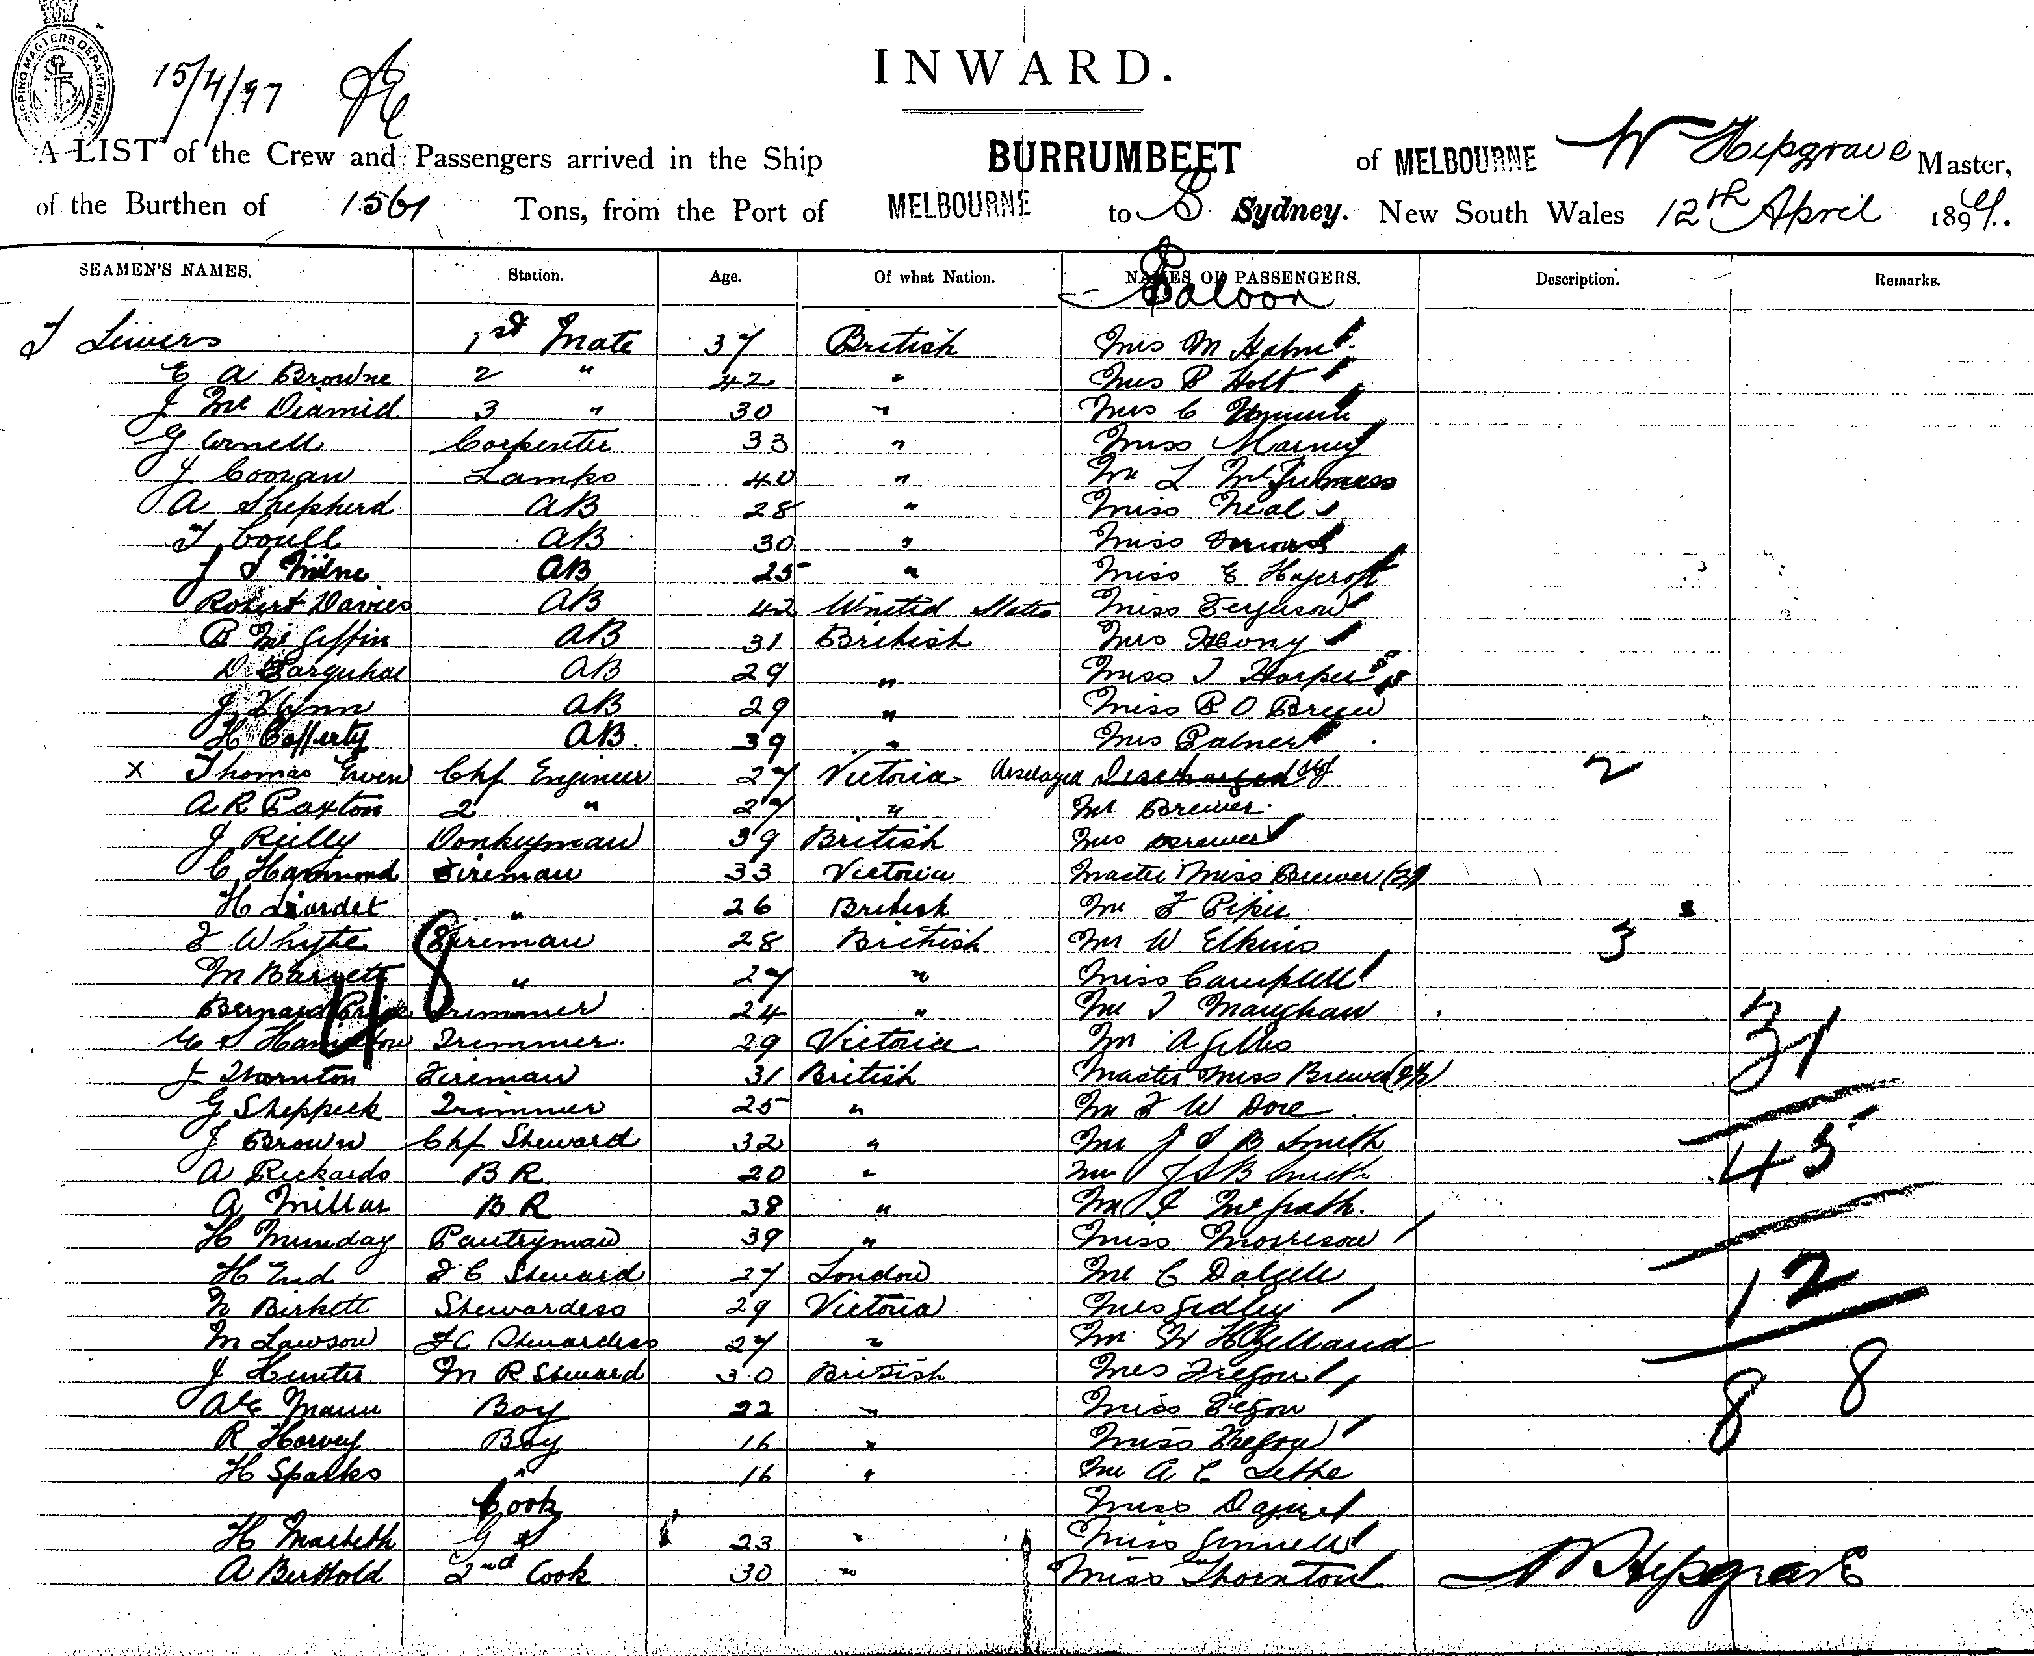 15/4/97
INWARD.
A LIST of the Crew and Passengers arrived in the Ship BURRUMBEET of MELBOURNE W Hipgrave Master,
of the Burthen of 1561 Tons, from the Port of MELBOURNE to S. Sydney. New South Wales 12th April 189
SEAMEN'S NAMES. Station. Age. Of what Nation. NAMES OF PASSENGERS. Description. Remarks.
Saloon
1st Mate 37 British Mrs M
E A Browne 2 " 42 " Mrs Holt
J Mc Diamid 3 " 30 " Mrs C
G Cornell Carpenter 33 " Miss Marney
J Coonan Lamps 40 " L
A Shepherd AB 28 " Miss Neal
T Coull AB 30 " Miss
J S Milne AB 25 " Miss E Haycroft
Robert Davies AB 42 United States Miss Ferguson
B Mc Giffin AB 31 British Mrs
D Farquhar AB 29 " Miss Harper
J Flynn AB 29 " Miss O Brien
H Cafferty AB 39 " Mrs Palmer
x Thomas Chf Engineer 27 Victoria Discharged 2
A R Paxton 2 " 27 " Mr Brewer
J Reilly Donkeyman 39 British Mrs Brewer
C Hammond Fireman 33 Victoria Master Miss Brewer (2)
H Liardet " 26 British Mr F
F Whyte Fireman 28 British Mr W Elkins 3
M Barnett " 27 " Miss Campbell
Bernard Price Trimmer 24 " Mr Maughan
Hamilton Trimmer 29 Victoria Mr A Gibbs 31
J Thornton Fireman 31 British Master Miss Brewer
G Sheppeck Trimmer 25 " Mr F W Dore
J Brown Chf Steward 32 " Mr J S B Smith 45
A Rickards B R 20 " J S B Smith
A Millar B R 38 " McGrath
H Munday Pantryman 39 " Miss Morrison
H End F C Steward 27 London Mr C Dalgele 12
Birkett Stewardess 29 Victoria Mrs Sidley
M Lawson Stewardess 27 " Mr W H
J Hunter M R Steward 30 British Mrs Tregon 8 8
Mann Boy 22 " Miss
R Harvey Boy 16 " Miss
H Sparks " 16 " Mr A C Lethe
Cook Miss
H Macbeth 23 " Miss
A Berthold 2nd Cook 30 " Miss Thornton W Hipgrave